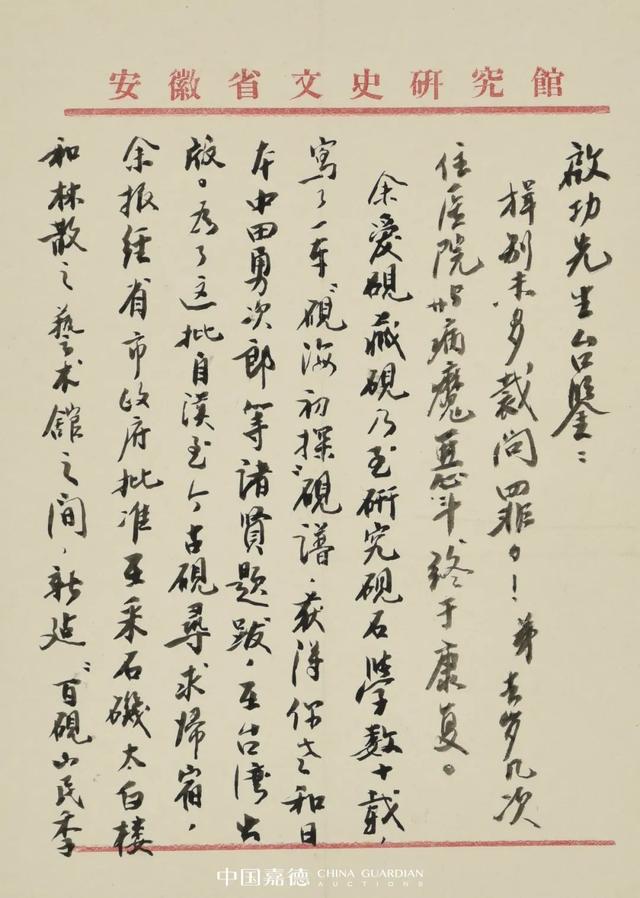 安徽省文史研究館
啟功先生台鑒:
揖别未多裁问罪。!弟去岁几次
住医院,与病魔恶斗,终于康复。
余爱硯藏硯乃至研究硯石學数十载,
寫了一本“硯海初探”硯譜,获得你老和日
本中田勇次郎等诸贤题跋,在台湾出
版。为了这批自漢至今古硯尋求帰宿,
余报经省市政府批准在采石磯太白楼
和林散之藝术館之间,新建“百硯山民李
中国嘉德 CHINA GUARDIAN
AUCTIONS